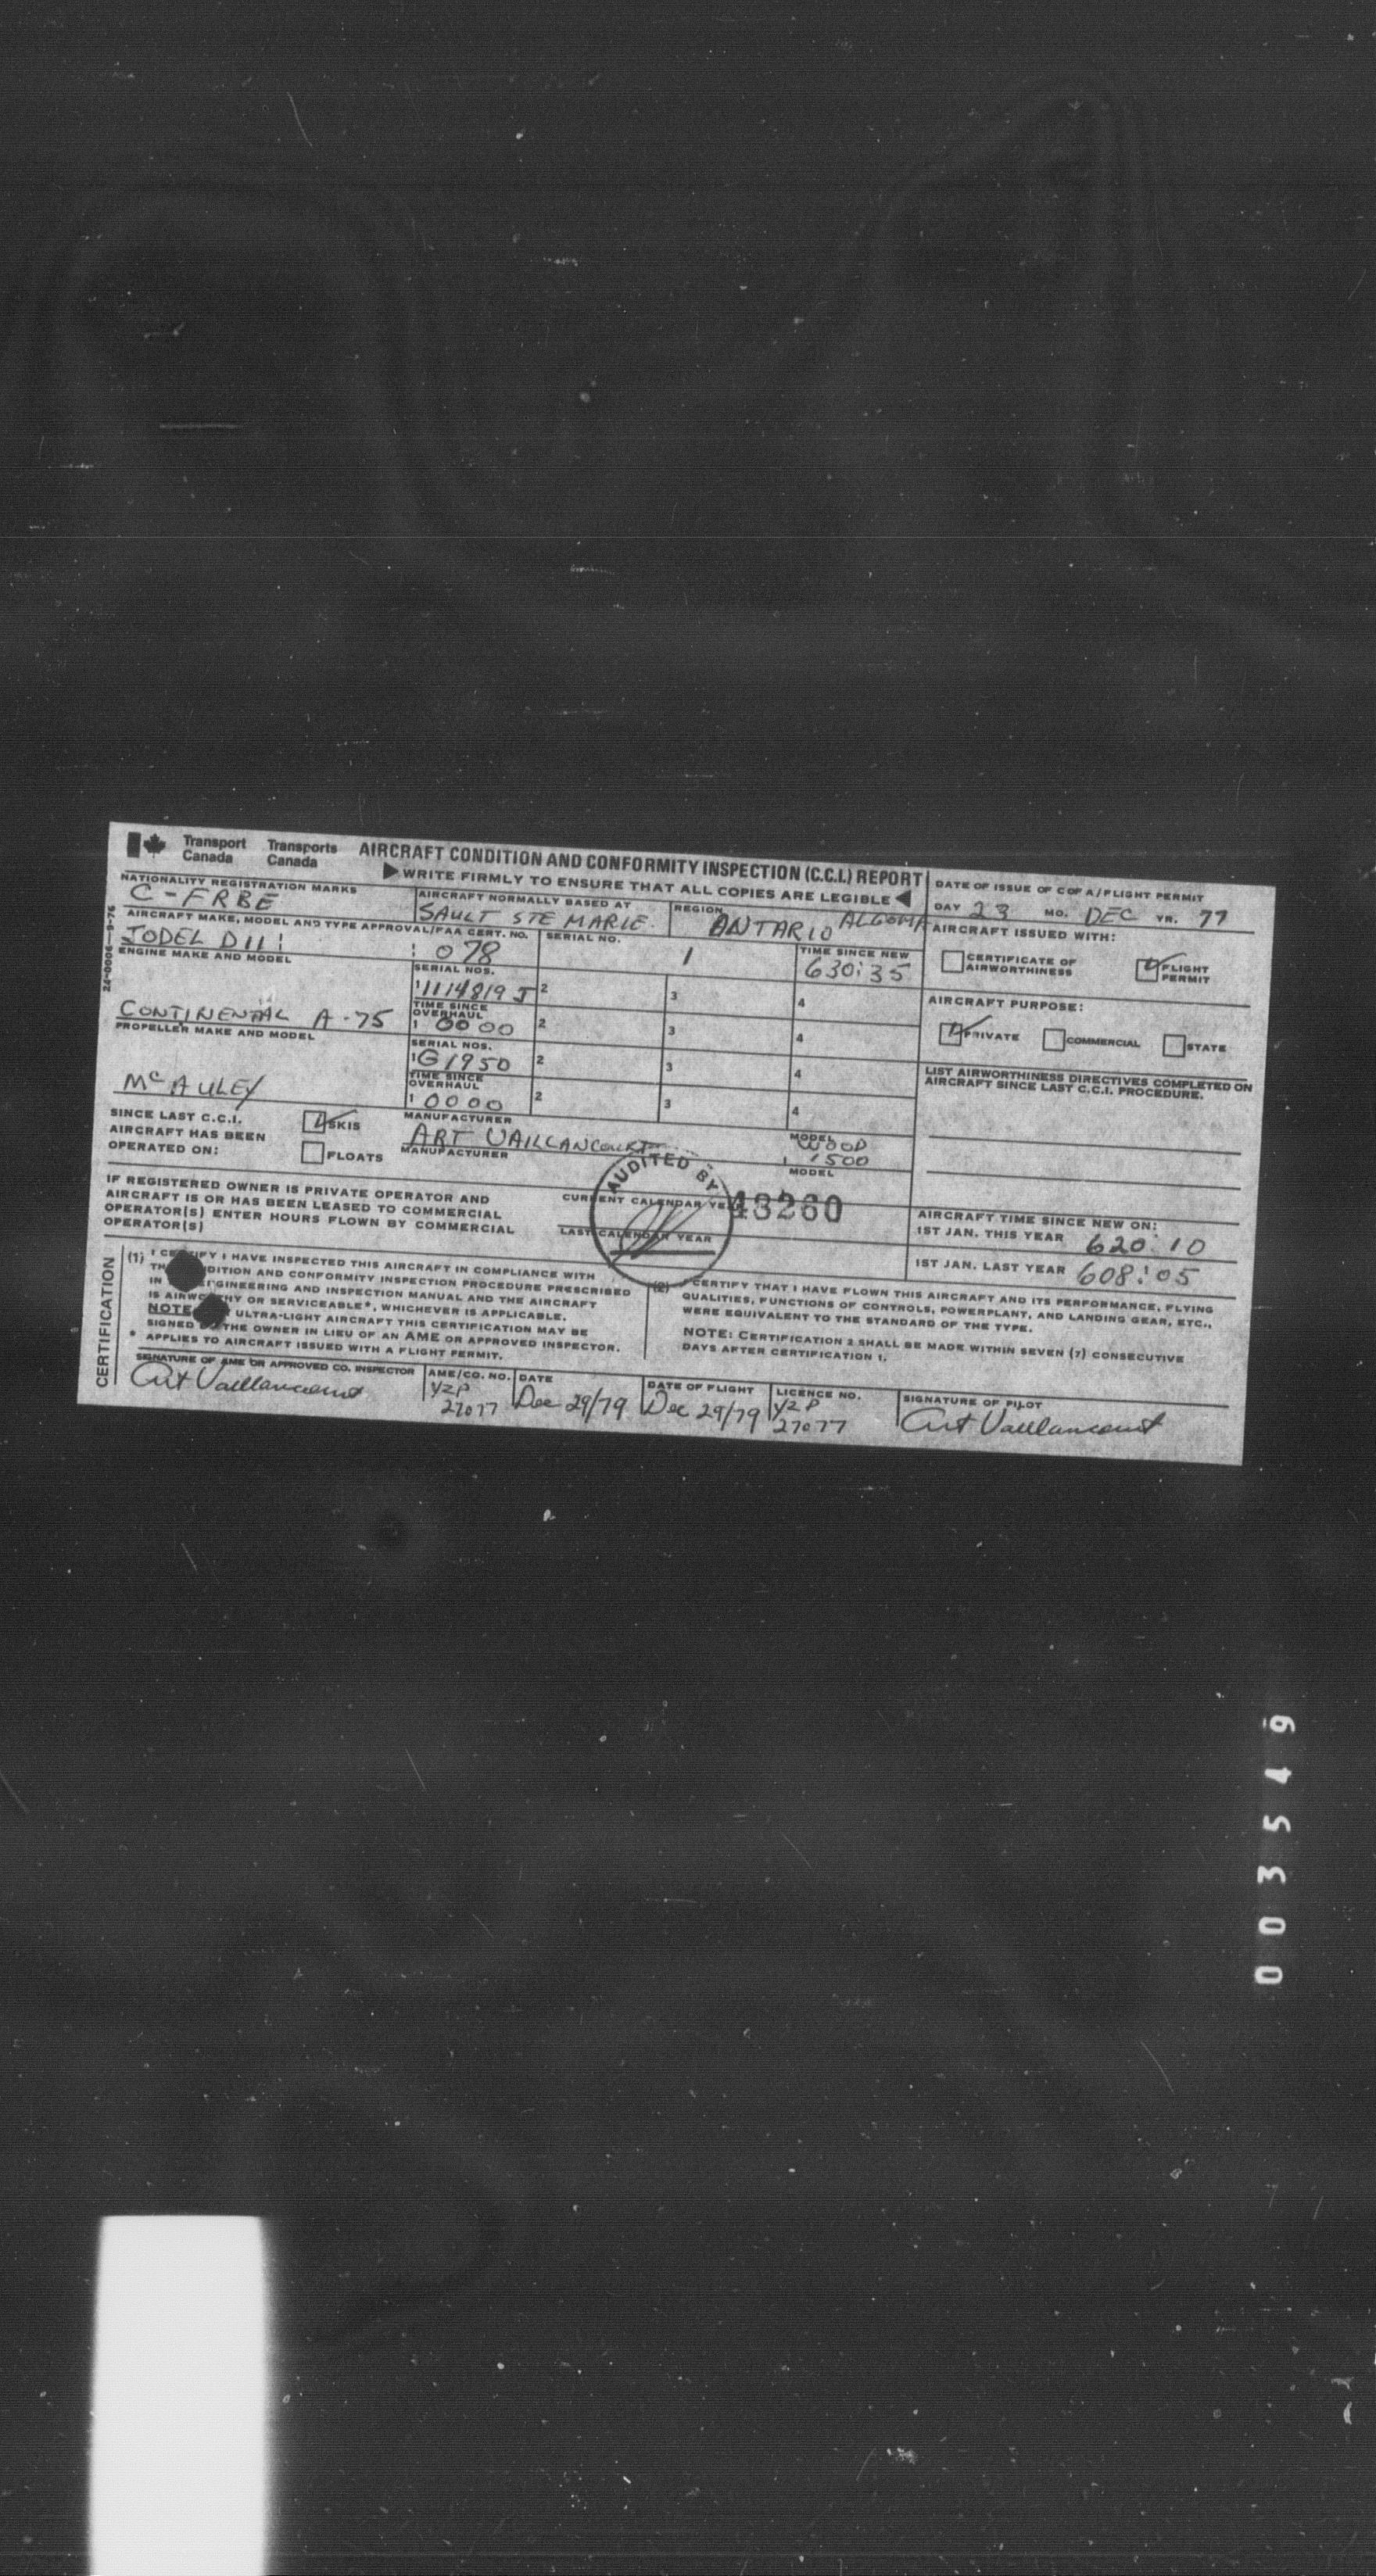 Transport Canada Transports Canada
AIRCRAFT CONDITION AND CONFORMITY INSPECTION (C.C.I.) REPORT
WRITE FIRMLY TO ENSURE THAT ALL COPIES ARE LEGIBLE
24-0006 9-76
NATIONALITY REGISTRATION MARKS
C-FRBE
AIRCRAFT NORMALLY BASED AT
SAULT STE MARIE.
REGION
ANTARIO ALGOMA
DATE OF ISSUE OF C OF A/FLIGHT PERMIT
DAY 23 MO. DEC YR. 77
AIRCRAFT MAKE, MODEL AND TYPE APPROVAL/FAA CERT. NO.
JODEL D11 078
SERIAL NO.
1
TIME SINCE NEW
630:35
AIRCRAFT ISSUED WITH:
CERTIFICATE OF AIRWORTHINESS
FLIGHT PERMIT
ENGINE MAKE AND MODEL
CONTINENTAL A-75
SERIAL NOS.
1 1114819 J 2 3 4
TIME SINCE OVERHAUL
1 0000 2 3 4
AIRCRAFT PURPOSE:
PRIVATE COMMERCIAL STATE
PROPELLER MAKE AND MODEL
McAULEY
SERIAL NOS.
1 G1950 2 3 4
TIME SINCE OVERHAUL
1 0000 2 3 4
LIST AIRWORTHINESS DIRECTIVES COMPLETED ON
AIRCRAFT SINCE LAST C.C.I. PROCEDURE.
SINCE LAST C.C.I.
AIRCRAFT HAS BEEN
OPERATED ON:
SKIS
FLOATS
MANUFACTURER
ART VAILLANCOURT
MODEL
WOOD
1500
MANUFACTURER
MODEL
IF REGISTERED OWNER IS PRIVATE OPERATOR AND
AIRCRAFT IS OR HAS BEEN LEASED TO COMMERCIAL
OPERATOR(S) ENTER HOURS FLOWN BY COMMERCIAL
OPERATOR(S)
CURRENT CALENDAR YEAR
LAST CALENDAR YEAR
AUDITED BY
43260
AIRCRAFT TIME SINCE NEW ON:
1ST JAN. THIS YEAR 620:10
1ST JAN. LAST YEAR 608:05
CERTIFICATION
(1) I CERTIFY I HAVE INSPECTED THIS AIRCRAFT IN COMPLIANCE WITH
CONDITION AND CONFORMITY INSPECTION PROCEDURE PRESCRIBED
IN ENGINEERING AND INSPECTION MANUAL AND THE AIRCRAFT
IS AIRWORTHY OR SERVICEABLE*, WHICHEVER IS APPLICABLE.
NOTE ULTRA-LIGHT AIRCRAFT THIS CERTIFICATION MAY BE
SIGNED THE OWNER IN LIEU OF AN AME OR APPROVED INSPECTOR.
* APPLIES TO AIRCRAFT ISSUED WITH A FLIGHT PERMIT.
(2) I CERTIFY THAT I HAVE FLOWN THIS AIRCRAFT AND ITS PERFORMANCE, FLYING
QUALITIES, FUNCTIONS OF CONTROLS, POWERPLANT, AND LANDING GEAR, ETC.,
WERE EQUIVALENT TO THE STANDARD OF THE TYPE.
NOTE: CERTIFICATION 2 SHALL BE MADE WITHIN SEVEN (7) CONSECUTIVE
DAYS AFTER CERTIFICATION 1.
SIGNATURE OF AME OR APPROVED CO. INSPECTOR
Art Vaillancourt
AME/CO. NO.
YZP
27077
DATE
Dec 29/79
DATE OF FLIGHT
Dec 29/79
LICENCE NO.
YZP
27077
SIGNATURE OF PILOT
Art Vaillancourt
003549